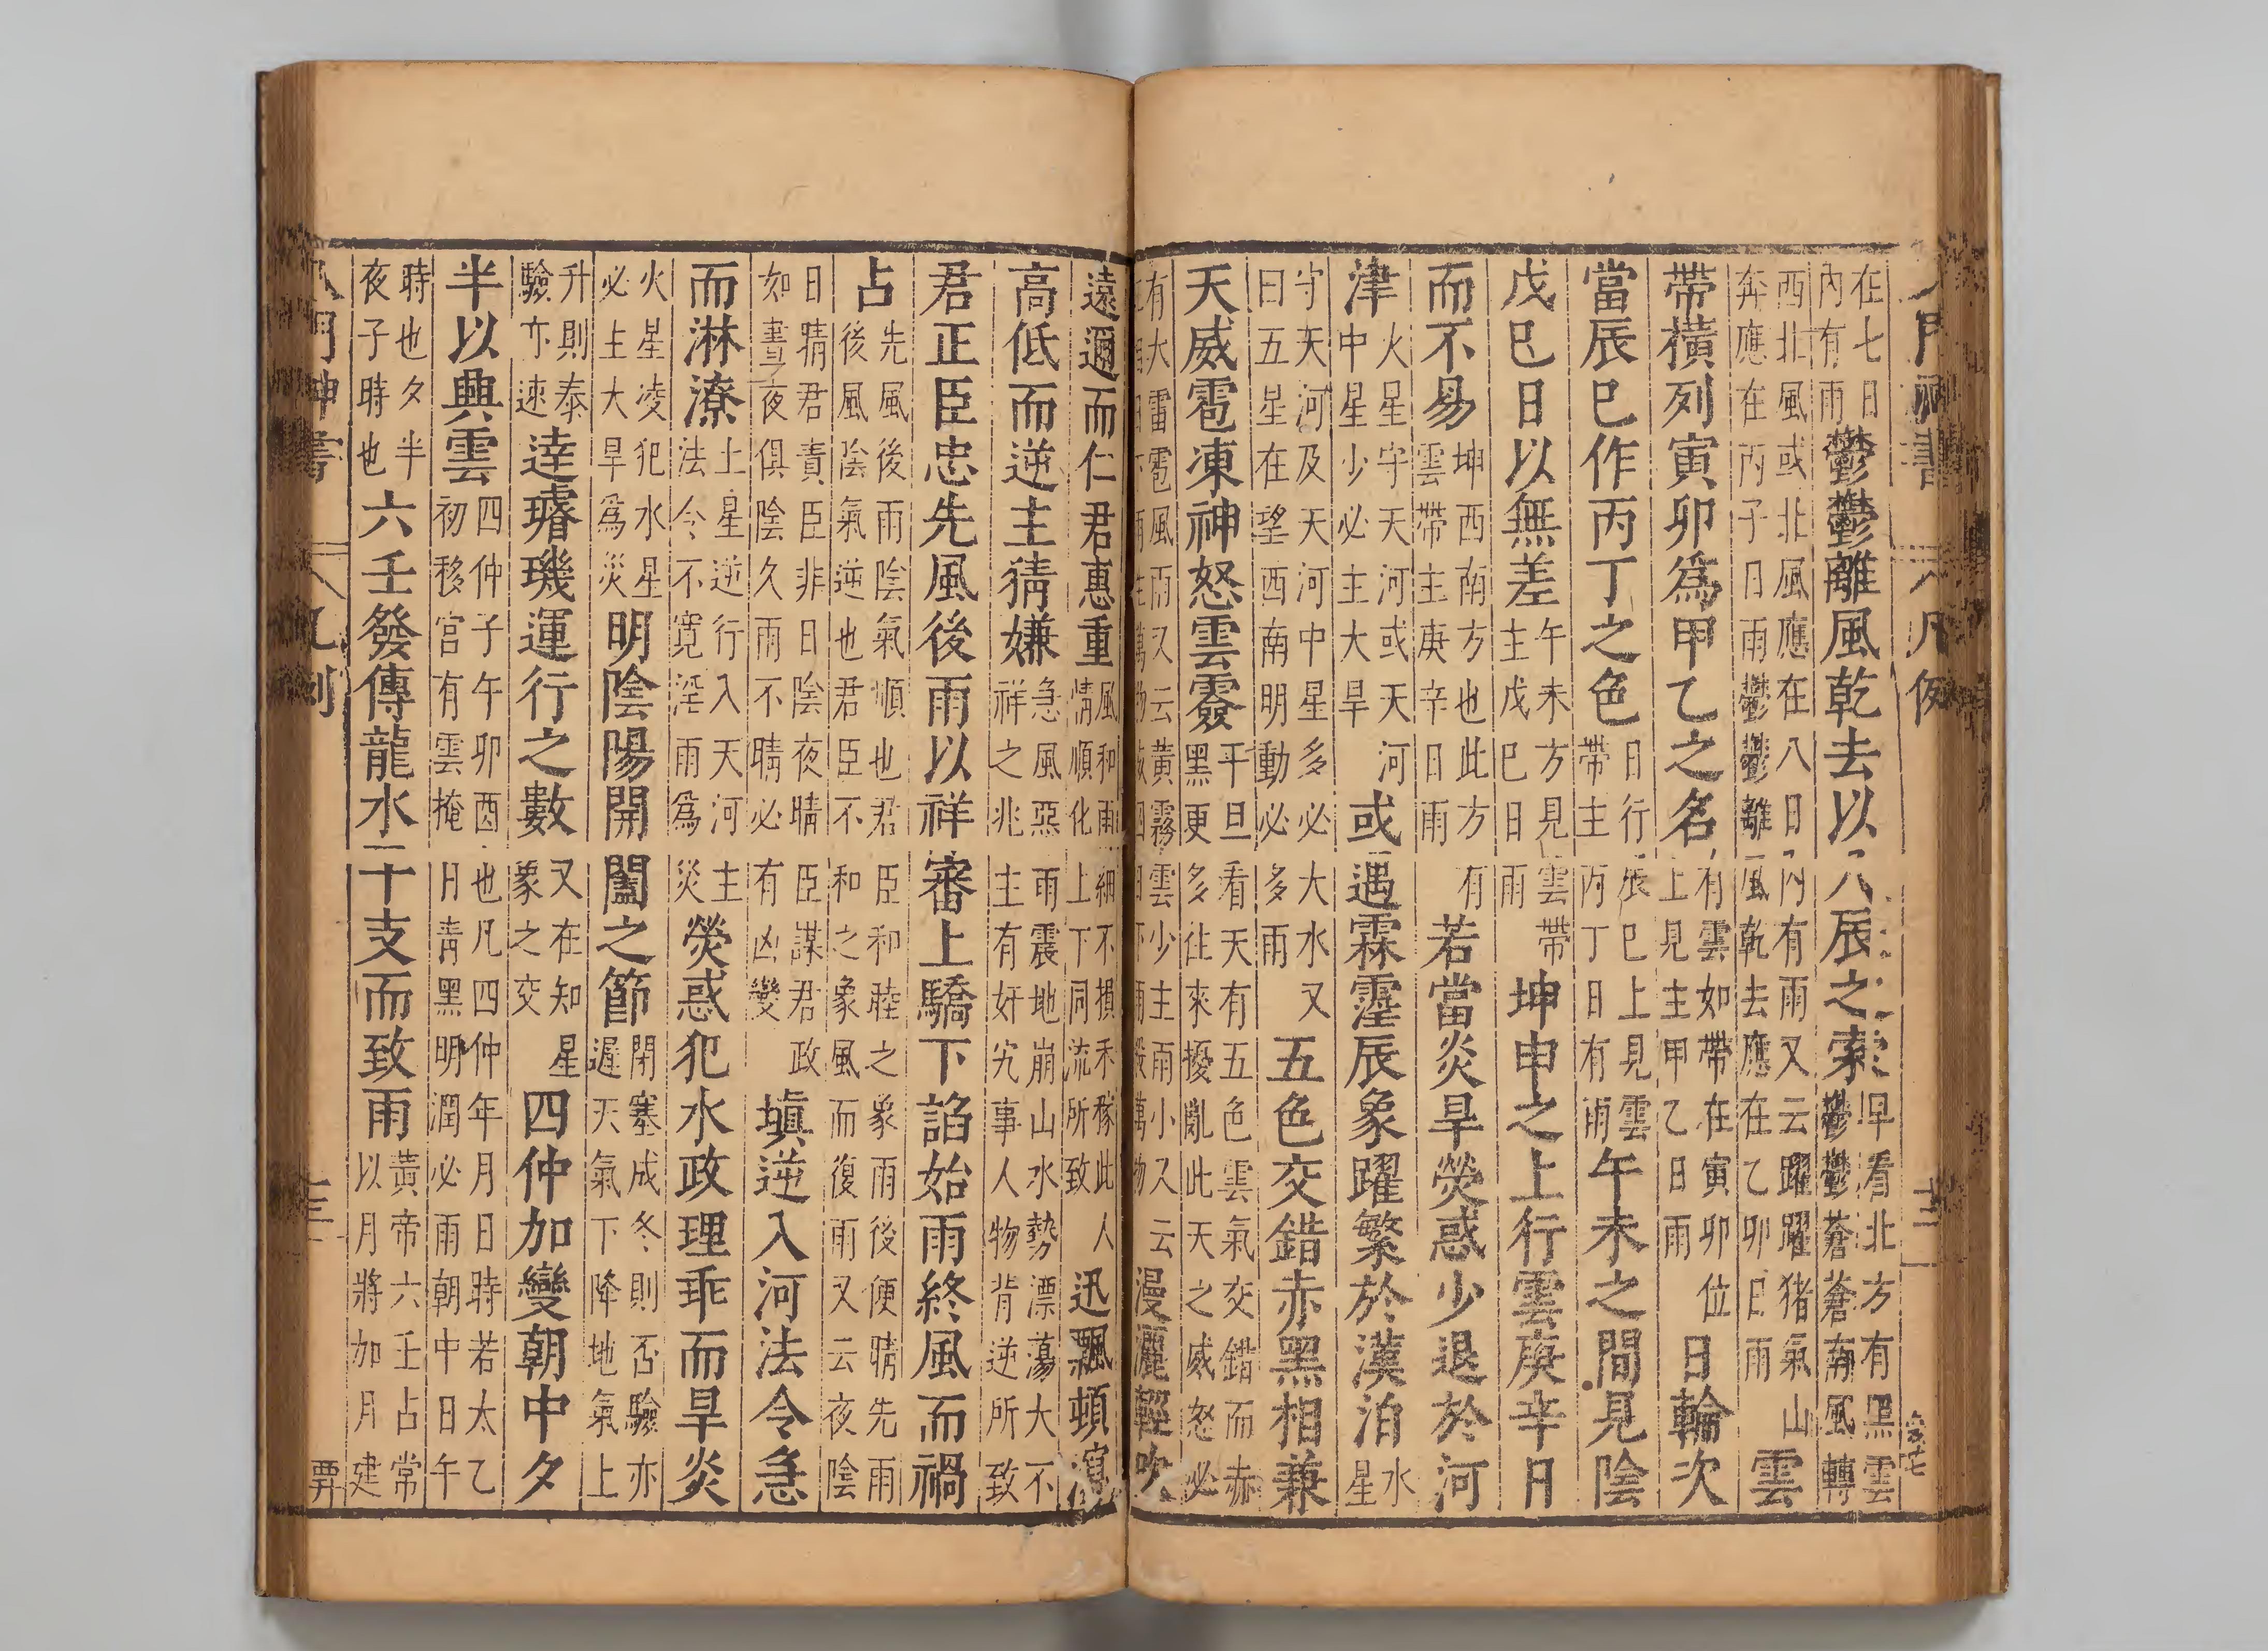 在七日内有雨鬱鬱離風乾去以八辰之索早看北方有黑雲鬱鬱蒼蒼南風轉
西北風或北風應在八日内有雨又云躍躍猪氣山奔應在丙子日雨鬱鬱離風乾去應在乙卯日雨雲
帶橫列寅卯爲甲乙之名有雲如帶在寅卯位上見主甲乙日雨日輪次
當辰巳作丙丁之色日行辰巳上見雲帶主丙丁日有雨午未之間見陰
戊巳日以無差午未方見雲帶主戊巳日雨坤申之上行雲庚辛日
而不易坤西南方也此方有雲帶主庚辛日雨若當炎旱熒惑少退於河
津火星守天河或天河中星少必主大旱或遇霖霪辰象躍繁於漢泊水星
守天河及天河中星多必大水又曰五星在望西南明動必多雨五色交錯赤黑相兼
天威雹凍神怒雲平旦看天有五色雲氣交錯而赤黑更多往來擾亂此天之威怒必
有大雷雹風雨又云黃霧雲少主雨小又云漫灑輕吹
遠邇而仁君惠重風和雨細不損禾稼此人情順化上下同流所致迅飄頓瀉
高低而逆主猜嫌急風惡雨震地崩山水勢漂蕩大不祥之兆主有奸宄事人物背逆所致
君正臣忠先風後雨以祥審上驕下諂始雨終風而禍
占先風後雨陰氣順也君臣和睦之象雨後便晴先雨後風陰氣逆也君臣不和之象風而復雨又云夜陰
日晴君責臣非日陰夜晴臣謀君政如晝夜俱陰久雨不晴必有凶變塡逆入河法令急
而淋潦土星逆行入天河主法令不寬淫雨爲災熒惑犯水政理乖而旱炎
火星凌犯水星必主大旱爲災明陰陽開闔之節閉塞成冬則否驗亦遲天氣下降地氣上
升則泰驗亦速達璿璣運行之數又在知星象之交四仲加變朝中夕
半以興雲四仲子午卯酉也凡四仲年月日時若太乙初移宮有雲掩日靑黑明潤必雨朝中日午
時也夕半夜子時也六壬發傳龍水二十支而致雨黃帝六壬占常以月將加月建